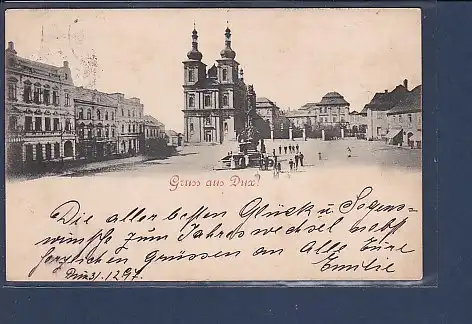 Gruss aus Dux!
Die aller besten Glück u. Segens-
wünsche zum Jahreswechsel nebst
herzlichen Grüssen an Alle Eure
Emilie
Dux 31.12.97.